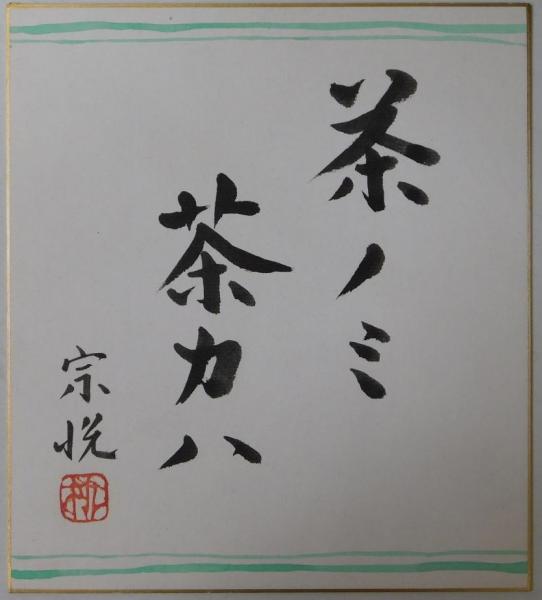 茶ノミ
茶カハ
宗悦
柳